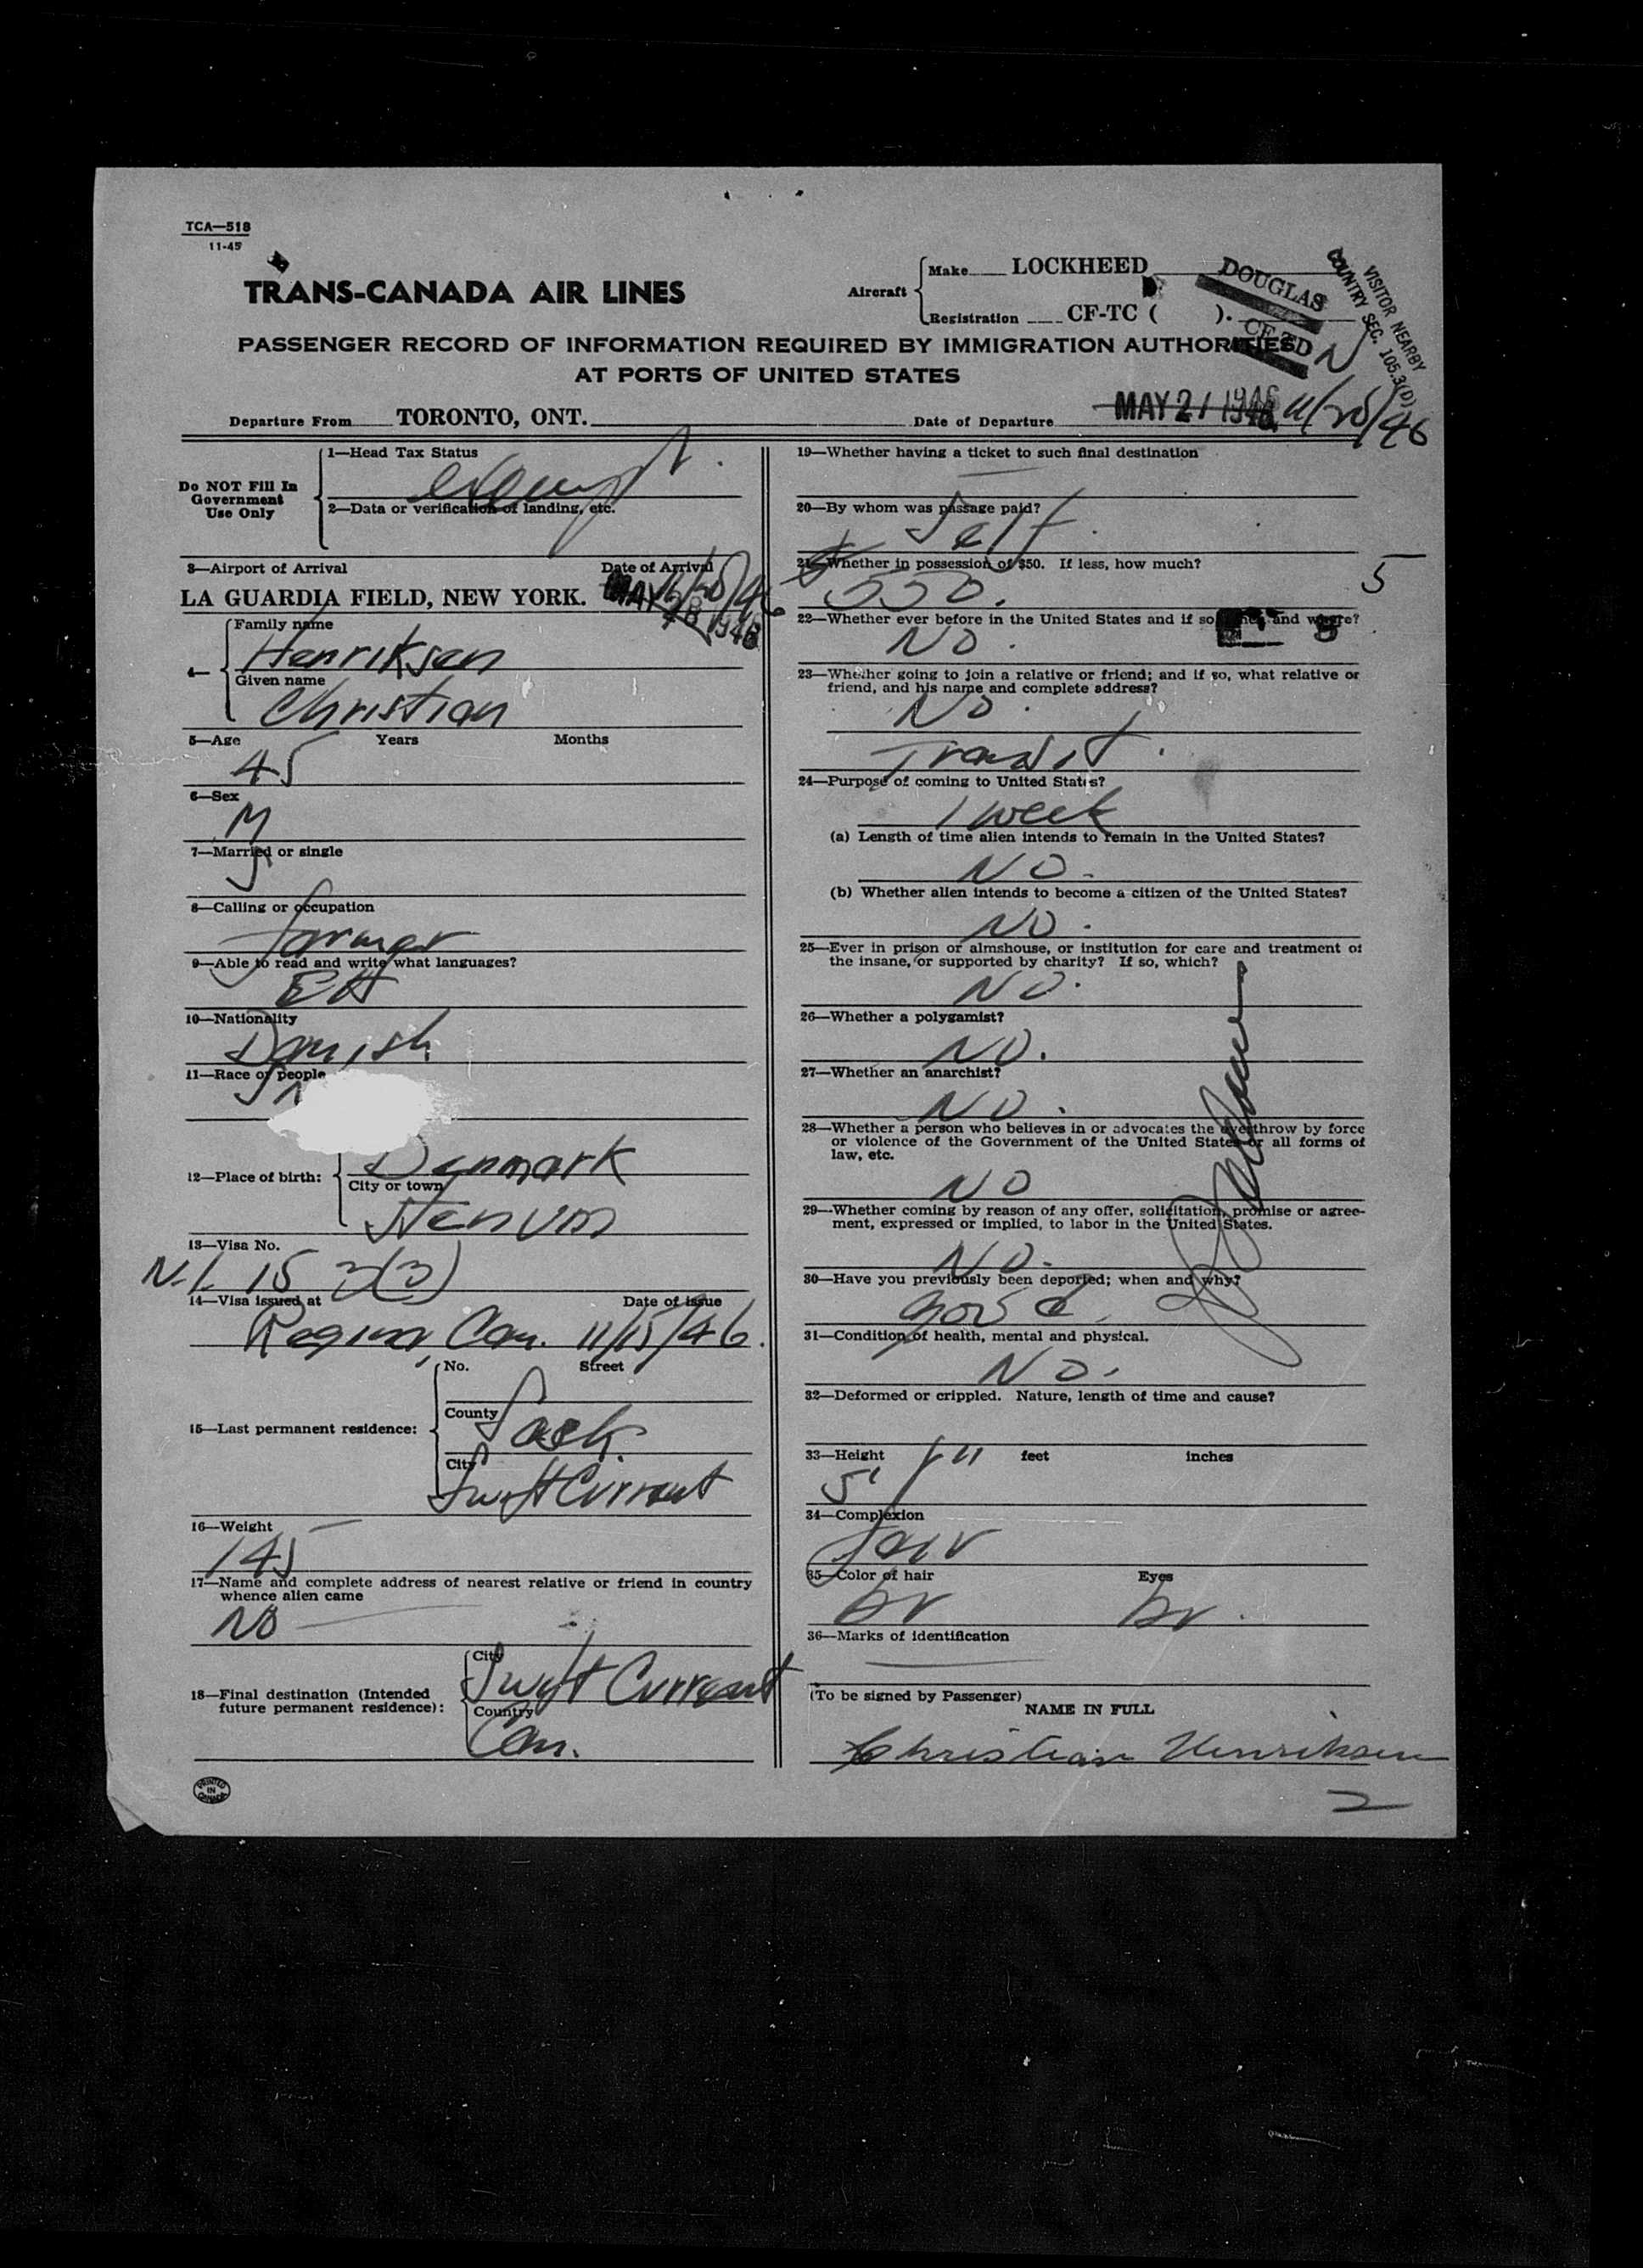 TCA—518
11-45
TRANS-CANADA AIR LINES
Aircraft
Make LOCKHEED
DOUGLAS
Registration CF-TC ( ).
VISITOR NEARBY
COUNTRY SEC. 105.3(D)
PASSENGER RECORD OF INFORMATION REQUIRED BY IMMIGRATION AUTHORITIES
AT PORTS OF UNITED STATES
Departure From TORONTO, ONT.
Date of Departure MAY 21 1946 11/20/46
Do NOT Fill In
Government
Use Only
1—Head Tax Status
exempt
2—Data or verification of landing, etc.
3—Airport of Arrival Date of Arrival
LA GUARDIA FIELD, NEW YORK. 11/20/46
4—
Family name
Henriksen
Given name
Christian
5—Age Years Months
45
6—Sex
M
7—Married or single
S
8—Calling or occupation
farmer
9—Able to read and write what languages?
10—Nationality
Danish
11—Race or people
12—Place of birth:
Denmark
City or town
13—Visa No.
15 3(3)
14—Visa issued at Date of issue
Regina, Can. 11/15/46.
15—Last permanent residence:
No. Street
County
Sask.
City
Swift Current
16—Weight
145
17—Name and complete address of nearest relative or friend in country
whence alien came
No
18—Final destination (Intended
future permanent residence):
City
Swift Current
Country
Can.
PRINTED
IN
CANADA
19—Whether having a ticket to such final destination
20—By whom was passage paid?
Self.
21—Whether in possession of $50. If less, how much?
550.
5
22—Whether ever before in the United States and if so, when and where?
No.
23—Whether going to join a relative or friend; and if so, what relative or
friend, and his name and complete address?
No.
Transit.
24—Purpose of coming to United States?
1 week
(a) Length of time alien intends to remain in the United States?
NO.
(b) Whether alien intends to become a citizen of the United States?
NO.
25—Ever in prison or almshouse, or institution for care and treatment of
the insane, or supported by charity? If so, which?
NO.
26—Whether a polygamist?
NO.
27—Whether an anarchist?
NO.
28—Whether a person who believes in or advocates the overthrow by force
or violence of the Government of the United States or all forms of
law, etc.
NO
29—Whether coming by reason of any offer, solicitation, promise or agree-
ment, expressed or implied, to labor in the United States.
NO.
30—Have you previously been deported; when and why?
Good.
31—Condition of health, mental and physical.
No.
32—Deformed or crippled. Nature, length of time and cause?
33—Height feet inches
5'
34—Complexion
fair
35—Color of hair Eyes
br br.
36—Marks of identification
(To be signed by Passenger)
NAME IN FULL
Christian Henriksen
2